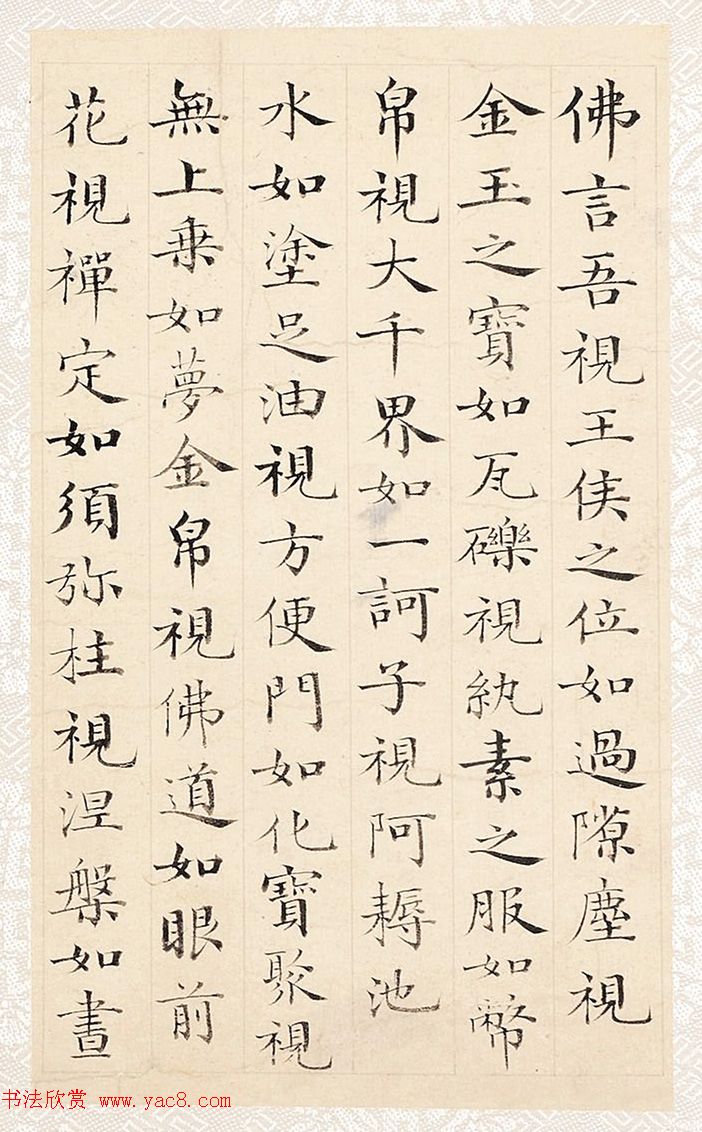 佛言吾視王侯之位如過隙塵視
金玉之寶如瓦礫視紈素之服如幣
帛視大千界如一訶子視阿耨池
水如塗足油視方便門如化寶聚視
無上乘如夢金帛視佛道如眼前
花視禪定如須弥柱視涅槃如晝
书法欣赏 www.yac8.com